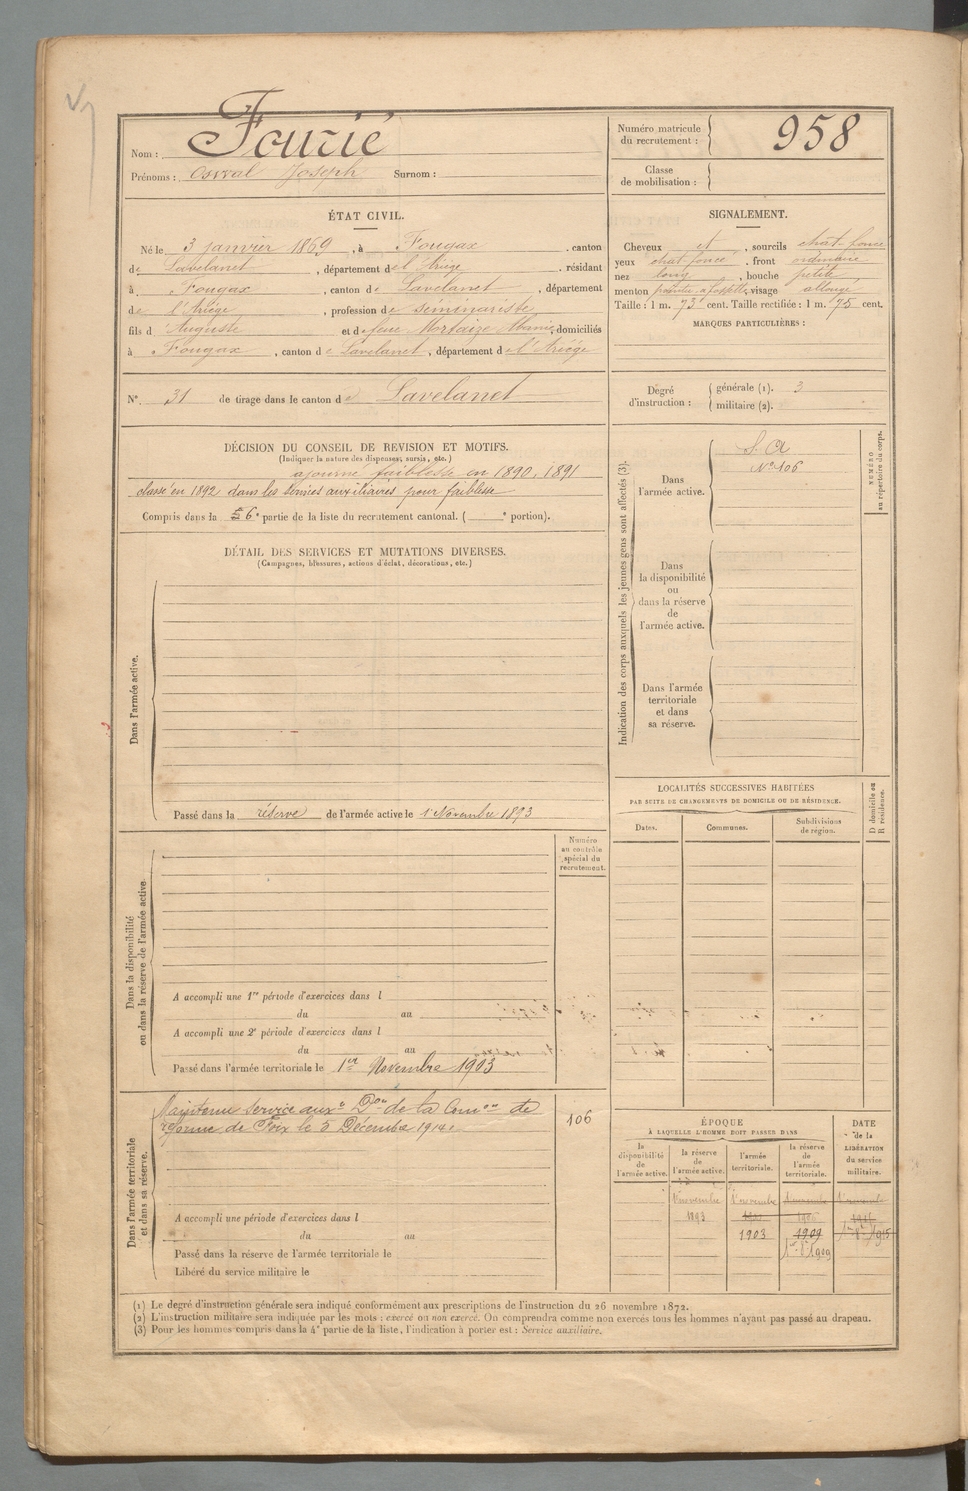 Fourié
Nom :
Prénoms : Osval Joseph Surnom :
Numéro matricule du recrutement : 958
Classe de mobilisation :
ÉTAT CIVIL.
Né le 3 janvier 1869, à Fougax, canton
de Lavelanet, département de l'Ariège, résidant
à Fougax, canton de Lavelanet, département
de l'Ariège, profession de séminariste
fils d'Auguste et de feue Mortaize Marie, domiciliés
à Fougax, canton de Lavelanet, département de l'Ariège
N° 31 de tirage dans le canton de Lavelanet
SIGNALEMENT.
Cheveux et, sourcils chat. foncé
yeux chat foncé, front ordinaire
nez long, bouche petite
menton pointu à fossette, visage allongé
Taille : 1 m. 73 cent. Taille rectifiée : 1 m. 75 cent.
MARQUES PARTICULIÈRES :
Degré d'instruction : générale (1). 3
militaire (2).
DÉCISION DU CONSEIL DE REVISION ET MOTIFS.
(Indiquer la nature des dispenses, sursis, etc.)
ajourné faiblesse en 1890, 1891
classé en 1892 dans les services auxiliaires pour faiblesse
Compris dans la 6e partie de la liste du recrutement cantonal. ( e portion).
DÉTAIL DES SERVICES ET MUTATIONS DIVERSES.
(Campagnes, blessures, actions d'éclat, décorations, etc.)
Dans l'armée active.
Passé dans la réserve de l'armée active le 1er Novembre 1893
Indication des corps auxquels les jeunes gens sont affectés (3).
Dans l'armée active.
S. A
N° 106
NUMÉRO au répertoire du corps.
Dans la disponibilité ou dans la réserve de l'armée active.
Dans l'armée territoriale et dans sa réserve.
LOCALITÉS SUCCESSIVES HABITÉES
PAR SUITE DE CHANGEMENTS DE DOMICILE OU DE RÉSIDENCE.
Dates.
Communes.
Subdivisions de région.
D domicile ou R résidence.
Dans la disponibilité ou dans la réserve de l'armée active.
Numéro au contrôle spécial du recrutement.
A accompli une 1re période d'exercices dans l
du au
A accompli une 2e période d'exercices dans l
du au
Passé dans l'armée territoriale le 1er Novembre 1903
Dans l'armée territoriale et dans sa réserve.
Maintenu service auxre Don de la Comon de
réforme de Foix le 5 Décembre 1914.
106
A accompli une période d'exercices dans l
du au
Passé dans la réserve de l'armée territoriale le
Libéré du service militaire le
ÉPOQUE
À LAQUELLE L'HOMME DOIT PASSER DANS
la disponibilité de l'armée active.
la réserve de l'armée active.
l'armée territoriale.
la réserve de l'armée territoriale.
DATE de la LIBÉRATION du service militaire.
1er novembre 1er novembre 1er novembre 1er novembre
1893
1903 1909
1er 8bre 1909
(1) Le degré d'instruction générale sera indiqué conformément aux prescriptions de l'instruction du 26 novembre 1872.
(2) L'instruction militaire sera indiquée par les mots : exercé ou non exercé. On comprendra comme non exercés tous les hommes n'ayant pas passé au drapeau.
(3) Pour les hommes compris dans la 4e partie de la liste, l'indication à porter est : Service auxiliaire.